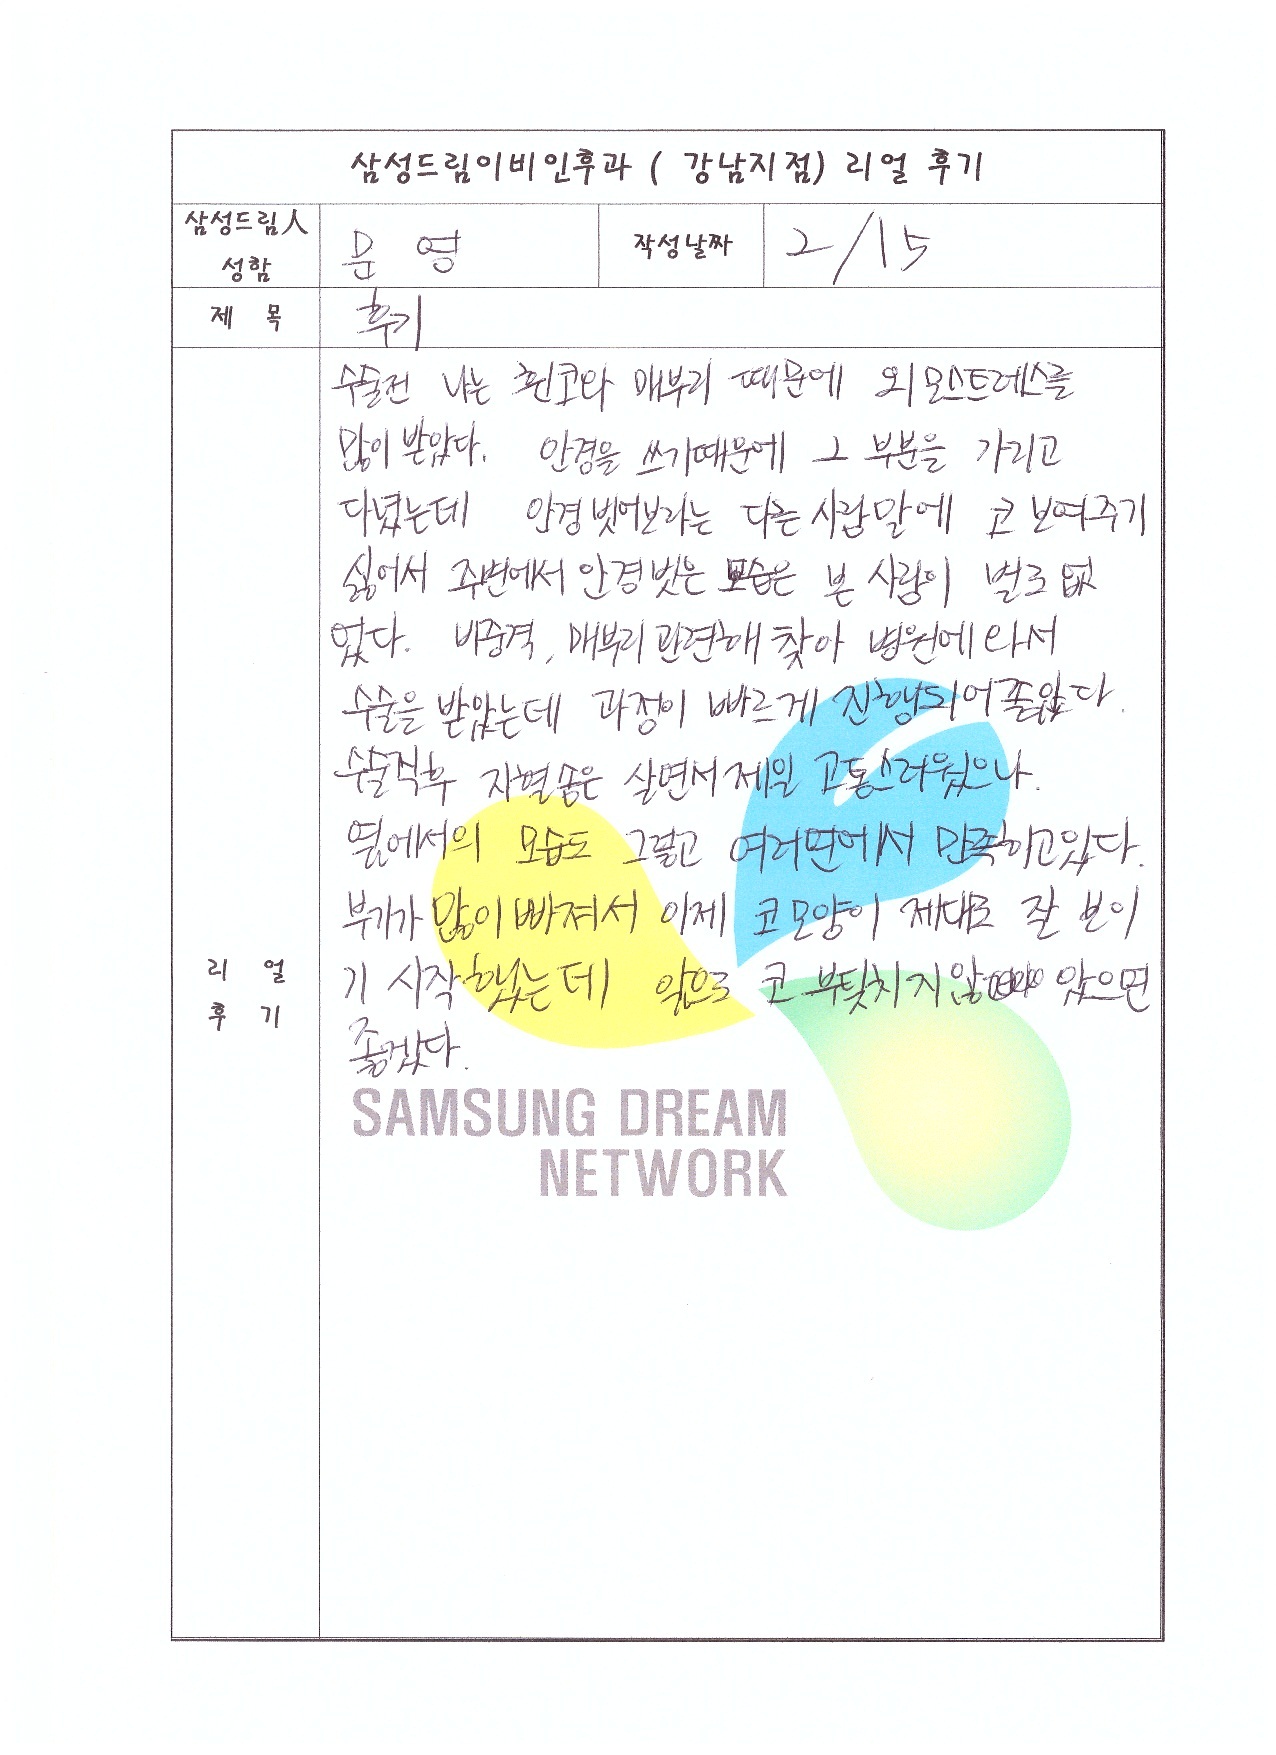 삼성드림이비인후과 ( 강남지점) 리얼 후기
삼성드림人 성함 문 영 작성날짜 2/15
제 목 후기
수술전 나는 휜코와 매부리 때문에 외모스트레스를
많이 받았다. 안경을 쓰기때문에 그 부분을 가리고
다녔는데 안경 벗어보라는 다른 사람말에 코 보여주기
싫어서 주변에서 안경벗은 모습은 본 사람이 별로 없
었다. 비중격, 매부리 관련해 찾아 병원에 와서
수술을 받았는데 과정이 빠르게 진행되어 좋았다.
수술직후 지혈솜은 살면서 제일 고통스러웠으나.
옆에서의 모습도 그렇고 여러면에서 만족하고있다.
부기가 많이 빠져서 이제 코모양이 제대로 잘 보이
기 시작했는데 앞으로 코 부딫치지 않 았으면
좋겠다.
리 얼
후 기
SAMSUNG DREAM
NETWORK